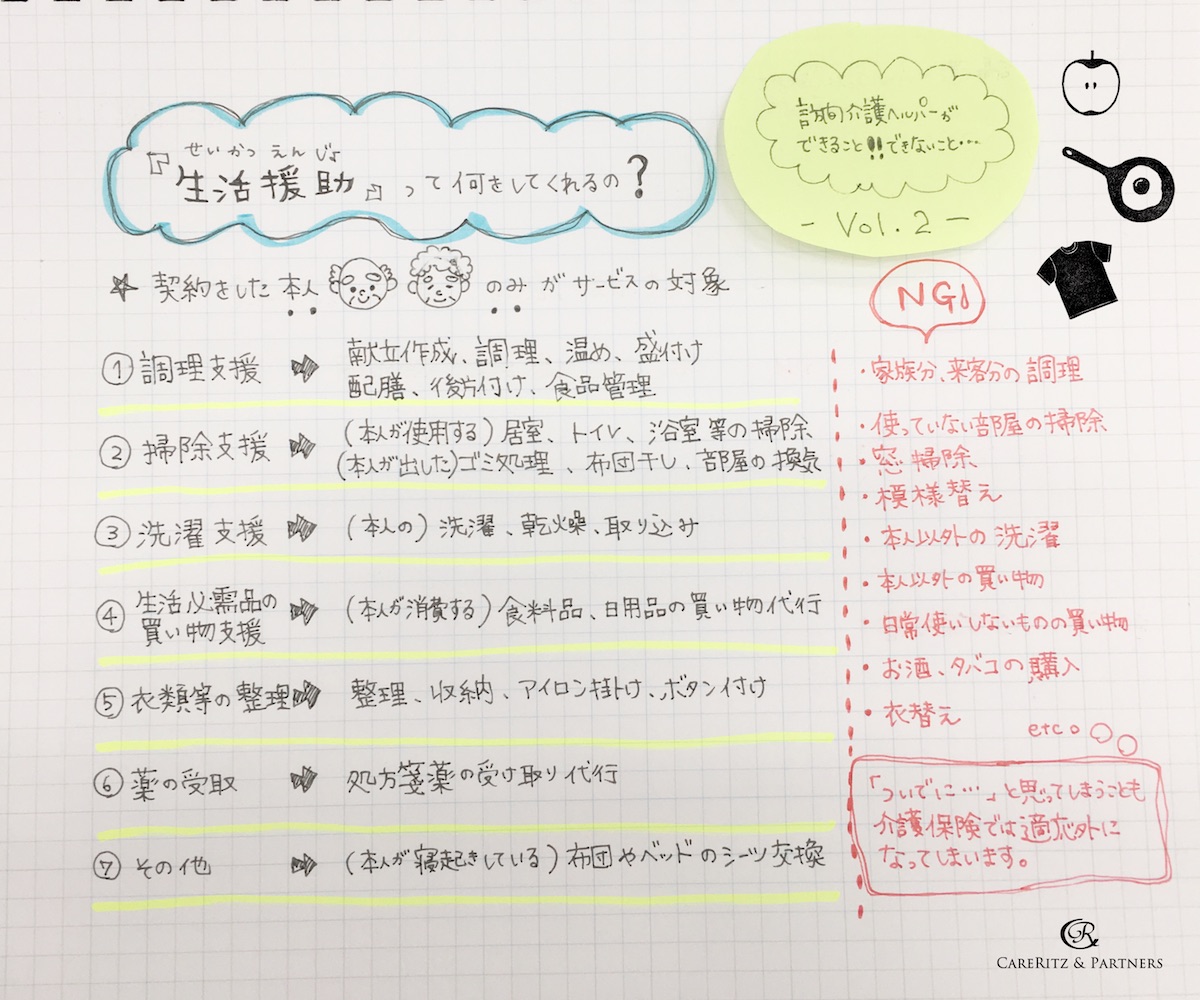 せいかつ えんじょ
『生活援助』って何をしてくれるの?
訪問介護ヘルパーが
できること!!できないこと…
- Vol.2 -
☆ 契約をした本人のみがサービスの対象
① 調理支援 ➡ 献立作成、調理、温め、盛付け
配膳、後片付け、食品管理
② 掃除支援 ➡ (本人が使用する)居室、トイレ、浴室等の掃除
(本人が出した)ゴミ処理、布団干し、部屋の換気
③ 洗濯支援 ➡ (本人の)洗濯、乾燥、取り込み
④ 生活必需品の
買い物支援 ➡ (本人が消費する)食料品、日用品の買い物代行
⑤ 衣類等の整理 ➡ 整理、収納、アイロン掛け、ボタン付け
⑥ 薬の受取 ➡ 処方箋薬の受け取り代行
⑦ その他 ➡ (本人が寝起きしている)布団やベッドのシーツ交換
NG!
・家族分、来客分の調理
・使っていない部屋の掃除
・窓掃除
・模様替え
・本人以外の洗濯
・本人以外の買い物
・日常使いしないものの買い物
・お酒、タバコの購入
・衣替え
etc。
「ついでに…」と思ってしまうことも
介護保険では適応外に
なってしまいます。
CR
CareRitz & Partners